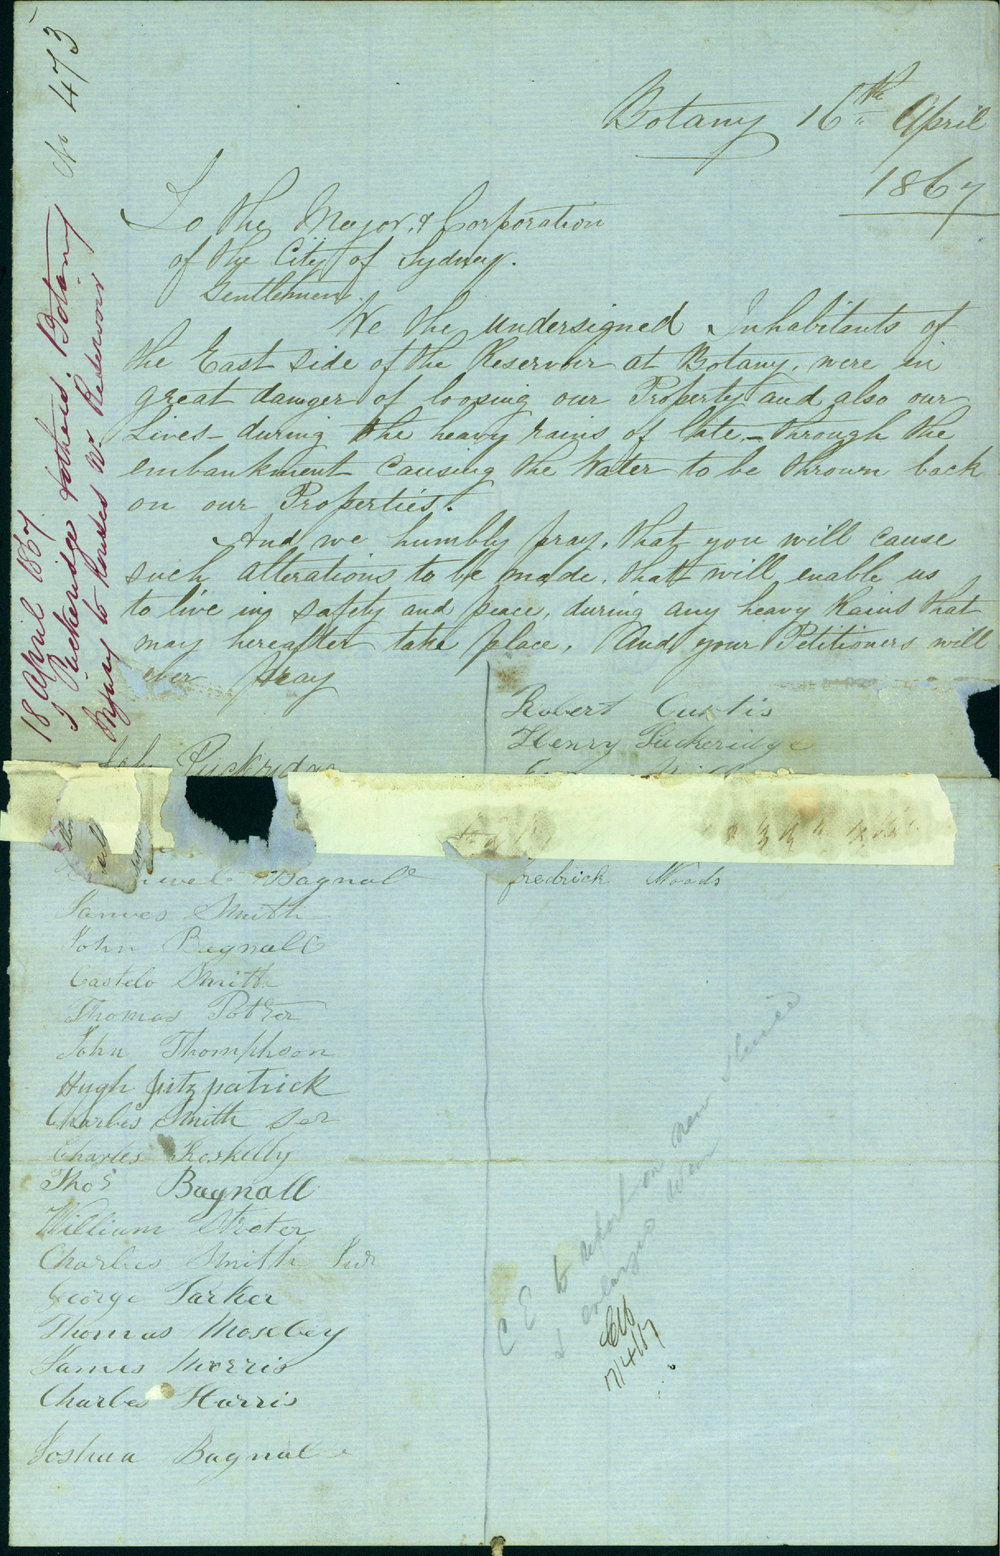 No 473
18 April 1867
J Puckeridge & others. Botany
Injury to houses Wr Reservoir
Botany 16th April
1867
To the Mayor, & Corporation
of the City of Sydney.
Gentlemen.
We the undersigned Inhabitants of
the East side of the Reservoir at Botany, were in
great danger of loosing our Property and also our
Lives - during the heavy rains of late - through the
embankment causing the Water to be thrown back
on our Properties.
And we humbly pray, that you will cause
such alterations to be made, that will enable us
to live in safety and peace, during any heavy Rains that
may hereafter take place. And your Petitioners will
ever pray
Robert Curtis
Henry Puckeridge
John Puckridge
Bagnall
Fredrick Woods
James Smith
John Bagnall
Castelo Smith
Thomas Potter
John Thomphson
Hugh Fitzpatrick
Charles Smith Ser
Charles Koskelly
Thos Bagnall
William Streter
Charles Smith Jur
George Parker
Thomas Mosebey
James Morris
Charles Harris
Joshua Bagnall
C E to report on new sluice
& enlarged weir